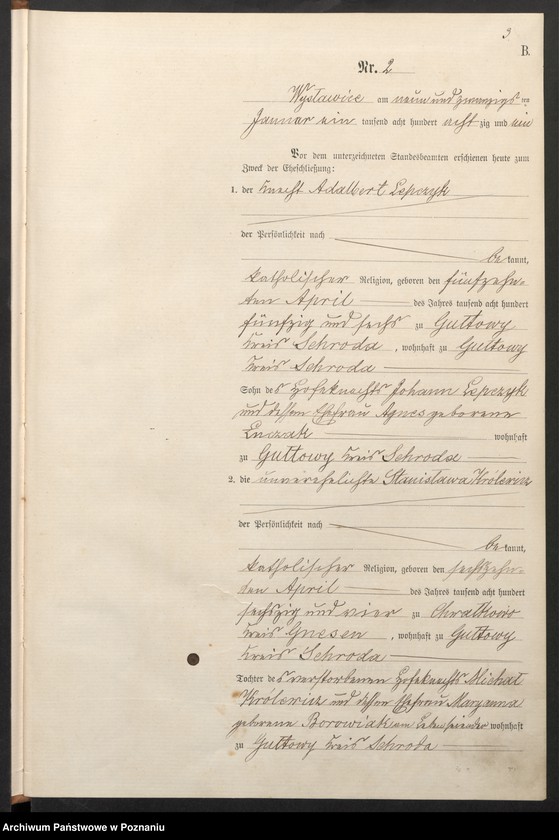 3
B.
Nr. 2
Wyslawice am neun und zwanzigsten
Januar ein tausend acht hundert acht zig und ein
Vor dem unterzeichneten Standesbeamten erschienen heute zum
Zweck der Eheschließung:
1. der Knecht Adalbert Lepczyk
der Persönlichkeit nach
bekannt,
katholischer Religion, geboren den fünfzehn-
ten April des Jahres tausend acht hundert
fünfzig und sechs zu Guttowy
Kreis Schroda, wohnhaft zu Guttowy
Kreis Schroda
Sohn des Hofeknechts Johann Lepczyk
und dessen Ehefrau Agnes geborene
Luczak wohnhaft
zu Guttowy Kreis Schroda
2. die unverehelichte Stanislawa Królewicz
der Persönlichkeit nach
bekannt,
katholischer Religion, geboren den sechszehn-
ten April des Jahres tausend acht hundert
sechszig und vier zu Chwalkowo
Kreis Gnesen, wohnhaft zu Guttowy
Kreis Schroda
Tochter des verstorbenen Hofeknechts Michał
Królewicz und dessen Ehefrau Maryanna
geborene Borowiak am Leben seiender wohnhaft
zu Guttowy Kreis Schroda
Archiwum Państwowe w Poznaniu